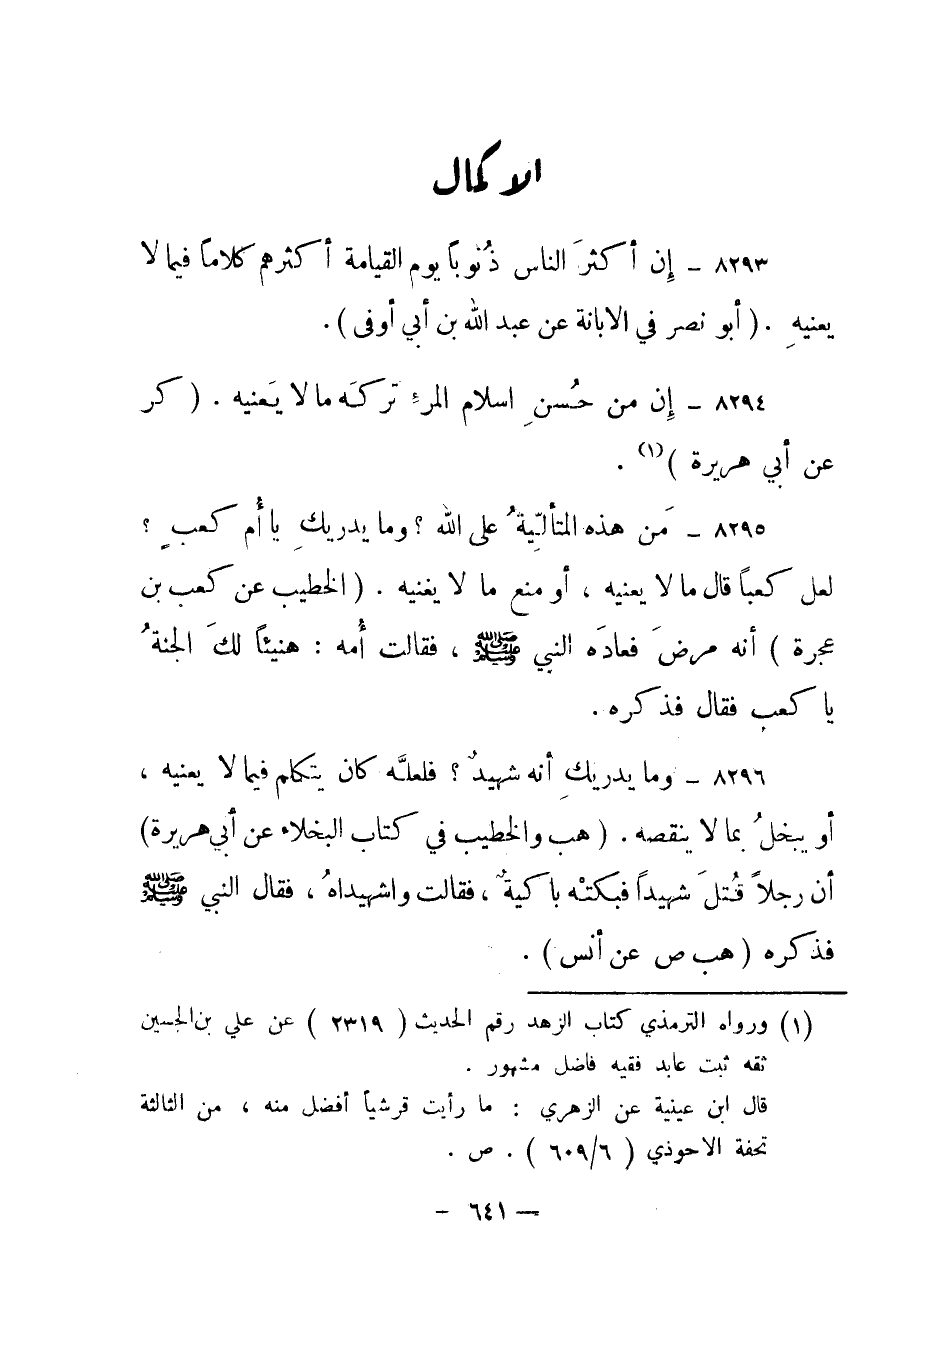 الاكمال
٨٢٩٣ ـ إِن أكثرَ الناس ذُنوباً يوم القيامة أكثرهم كلاماً فيما لا
يعنيهِ . ( أبو نصر في الابانة عن عبد الله بن أبي أوفى ) .
٨٢٩٤ ـ إِن من حُسنِ اسلام المرءِ تركَه ما لا يَعنيه . ( كر
عن أبي هريرة )(١) .
٨٢٩٥ ـ مَن هذه المتألّيةُ على الله ؟ وما يدريكِ يا أُم كعبٍ ؟
لعل كعباً قال ما لا يعنيه ، أو منع ما لا يغنيه . ( الخطيب عن كعب بن
عجرة ) أنه مرضَ فعادَه النبي ﷺ ، فقالت أُمه : هنيئاً لكَ الجنةُ
يا كعب فقال فذكره .
٨٢٩٦ ـ وما يدريكِ أنه شهيدٌ ؟ فلعلَّه كان يتكلم فيما لا يعنيه ،
أو يبخلُ بما لا ينقصه . ( هب والخطيب في كتاب البخلاء عن أبي هريرة )
أن رجلاً قُتلَ شهيداً فبكتْه باكيةٌ ، فقالت واشهيداهُ ، فقال النبي ﷺ
فذكره ( هب ص عن أنس ) .
(١) ورواه الترمذي كتاب الزهد رقم الحديث ( ٢٣١٩ ) عن علي بن الحسين
ثقه ثبت عابد فقيه فاضل مشهور .
قال ابن عينية عن الزهري : ما رأيت قرشياً أفضل منه ، من الثالثة
تحفة الاحوذي ( ٦٠٩/٦ ) . ص .
— ٦٤١ -